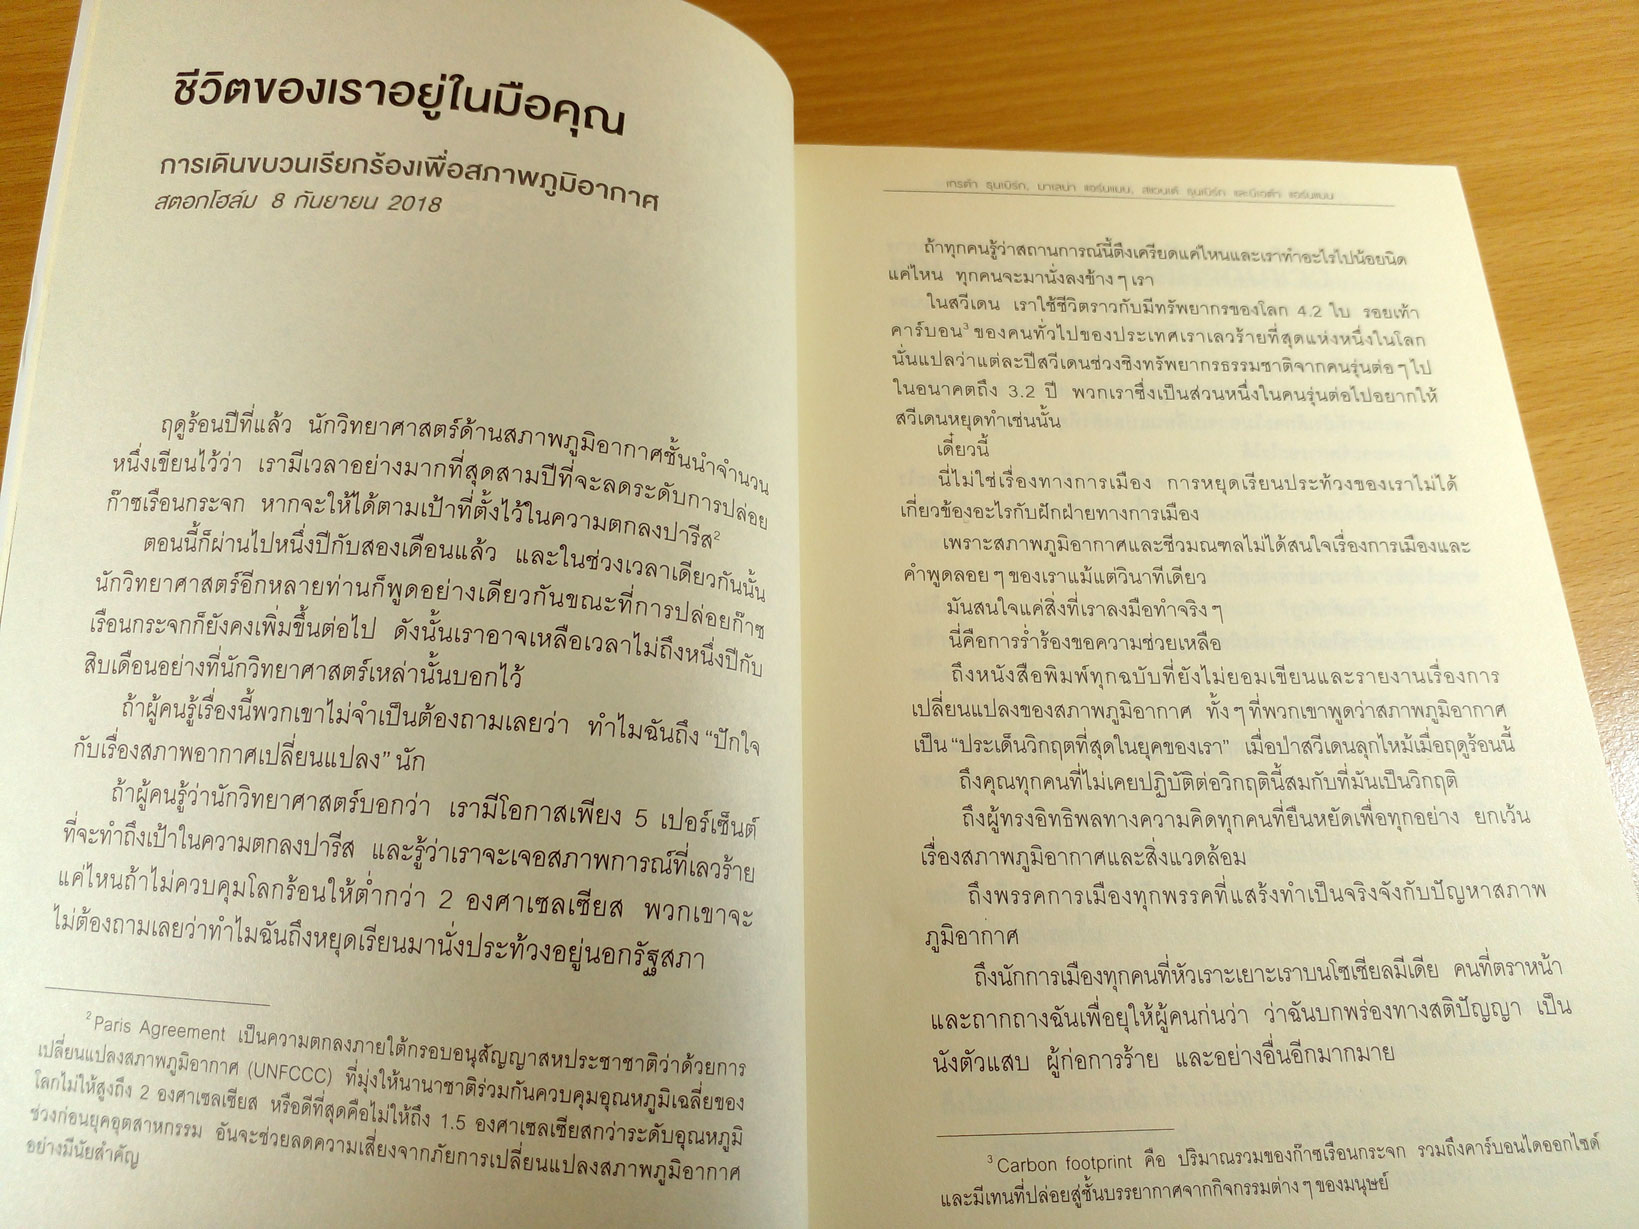 ชีวิตของเราอยู่ในมือคุณ
การเดินขบวนเรียกร้องเพื่อสภาพภูมิอากาศ
สตอกโฮล์ม 8 กันยายน 2018
ฤดูร้อนปีที่แล้ว นักวิทยาศาสตร์ด้านสภาพภูมิอากาศชั้นนำจำนวน
หนึ่งเขียนไว้ว่า เรามีเวลาอย่างมากที่สุดสามปีที่จะลดระดับการปล่อย
ก๊าซเรือนกระจก หากจะให้ได้ตามเป้าที่ตั้งไว้ในความตกลงปารีส²
ตอนนี้ก็ผ่านไปหนึ่งปีกับสองเดือนแล้ว และในช่วงเวลาเดียวกันนั้น
นักวิทยาศาสตร์อีกหลายท่านก็พูดอย่างเดียวกันขณะที่การปล่อยก๊าซ
เรือนกระจกก็ยังคงเพิ่มขึ้นต่อไป ดังนั้นเราอาจเหลือเวลาไม่ถึงหนึ่งปีกับ
สิบเดือนอย่างที่นักวิทยาศาสตร์เหล่านั้นบอกไว้
ถ้าผู้คนรู้เรื่องนี้พวกเขาไม่จำเป็นต้องถามเลยว่า ทำไมฉันถึง “ปักใจ
กับเรื่องสภาพอากาศเปลี่ยนแปลง” นัก
ถ้าผู้คนรู้ว่านักวิทยาศาสตร์บอกว่า เรามีโอกาสเพียง 5 เปอร์เซ็นต์
ที่จะทำถึงเป้าในความตกลงปารีส และรู้ว่าเราจะเจอสภาพการณ์ที่เลวร้าย
แค่ไหนถ้าไม่ควบคุมโลกร้อนให้ต่ำกว่า 2 องศาเซลเซียส พวกเขาจะ
ไม่ต้องถามเลยว่าทำไมฉันถึงหยุดเรียนมานั่งประท้วงอยู่นอกรัฐสภา
² Paris Agreement เป็นความตกลงภายใต้กรอบอนุสัญญาสหประชาชาติว่าด้วยการ
เปลี่ยนแปลงสภาพภูมิอากาศ (UNFCCC) ที่มุ่งให้นานาชาติร่วมกันควบคุมอุณหภูมิเฉลี่ยของ
โลกไม่ให้สูงถึง 2 องศาเซลเซียส หรือดีที่สุดคือไม่ให้ถึง 1.5 องศาเซลเซียสกว่าระดับอุณหภูมิ
ช่วงก่อนยุคอุตสาหกรรม อันจะช่วยลดความเสี่ยงจากภัยการเปลี่ยนแปลงสภาพภูมิอากาศ
อย่างมีนัยสำคัญ
เกรต้า ธุนเบิร์ก, มาเลน่า แอร์นแมน, สแวนเต้ ธุนเบิร์ก และบีเอต้า แอร์นแมน
ถ้าทุกคนรู้ว่าสถานการณ์นี้ตึงเครียดแค่ไหนและเราทำอะไรไปน้อยนิด
แค่ไหน ทุกคนจะมานั่งลงข้าง ๆ เรา
ในสวีเดน เราใช้ชีวิตราวกับมีทรัพยากรของโลก 4.2 ใบ รอยเท้า
คาร์บอน³ ของคนทั่วไปของประเทศเราเลวร้ายที่สุดแห่งหนึ่งในโลก
นั่นแปลว่าแต่ละปีสวีเดนช่วงชิงทรัพยากรธรรมชาติจากคนรุ่นต่อ ๆ ไป
ในอนาคตถึง 3.2 ปี พวกเราซึ่งเป็นส่วนหนึ่งในคนรุ่นต่อไปอยากให้
สวีเดนหยุดทำเช่นนั้น
เดี๋ยวนี้
นี่ไม่ใช่เรื่องทางการเมือง การหยุดเรียนประท้วงของเราไม่ได้
เกี่ยวข้องอะไรกับฝักฝ่ายทางการเมือง
เพราะสภาพภูมิอากาศและชีวมณฑลไม่ได้สนใจเรื่องการเมืองและ
คำพูดลอย ๆ ของเราแม้แต่วินาทีเดียว
มันสนใจแค่สิ่งที่เราลงมือทำจริง ๆ
นี่คือการร่ำร้องขอความช่วยเหลือ
ถึงหนังสือพิมพ์ทุกฉบับที่ยังไม่ยอมเขียนและรายงานเรื่องการ
เปลี่ยนแปลงของสภาพภูมิอากาศ ทั้ง ๆ ที่พวกเขาพูดว่าสภาพภูมิอากาศ
เป็น “ประเด็นวิกฤตที่สุดในยุคของเรา” เมื่อป่าสวีเดนลุกไหม้เมื่อฤดูร้อนนี้
ถึงคุณทุกคนที่ไม่เคยปฏิบัติต่อวิกฤตินี้สมกับที่มันเป็นวิกฤติ
ถึงผู้ทรงอิทธิพลทางความคิดทุกคนที่ยืนหยัดเพื่อทุกอย่าง ยกเว้น
เรื่องสภาพภูมิอากาศและสิ่งแวดล้อม
ถึงพรรคการเมืองทุกพรรคที่แสร้งทำเป็นจริงจังกับปัญหาสภาพ
ภูมิอากาศ
ถึงนักการเมืองทุกคนที่หัวเราะเยาะเราบนโซเชียลมีเดีย คนที่ตราหน้า
และถากถางฉันเพื่อยุให้ผู้คนก่นว่า ว่าฉันบกพร่องทางสติปัญญา เป็น
นังตัวแสบ ผู้ก่อการร้าย และอย่างอื่นอีกมากมาย
³ Carbon footprint คือ ปริมาณรวมของก๊าซเรือนกระจก รวมถึงคาร์บอนไดออกไซด์
และมีเทนที่ปล่อยสู่ชั้นบรรยากาศจากกิจกรรมต่าง ๆ ของมนุษย์